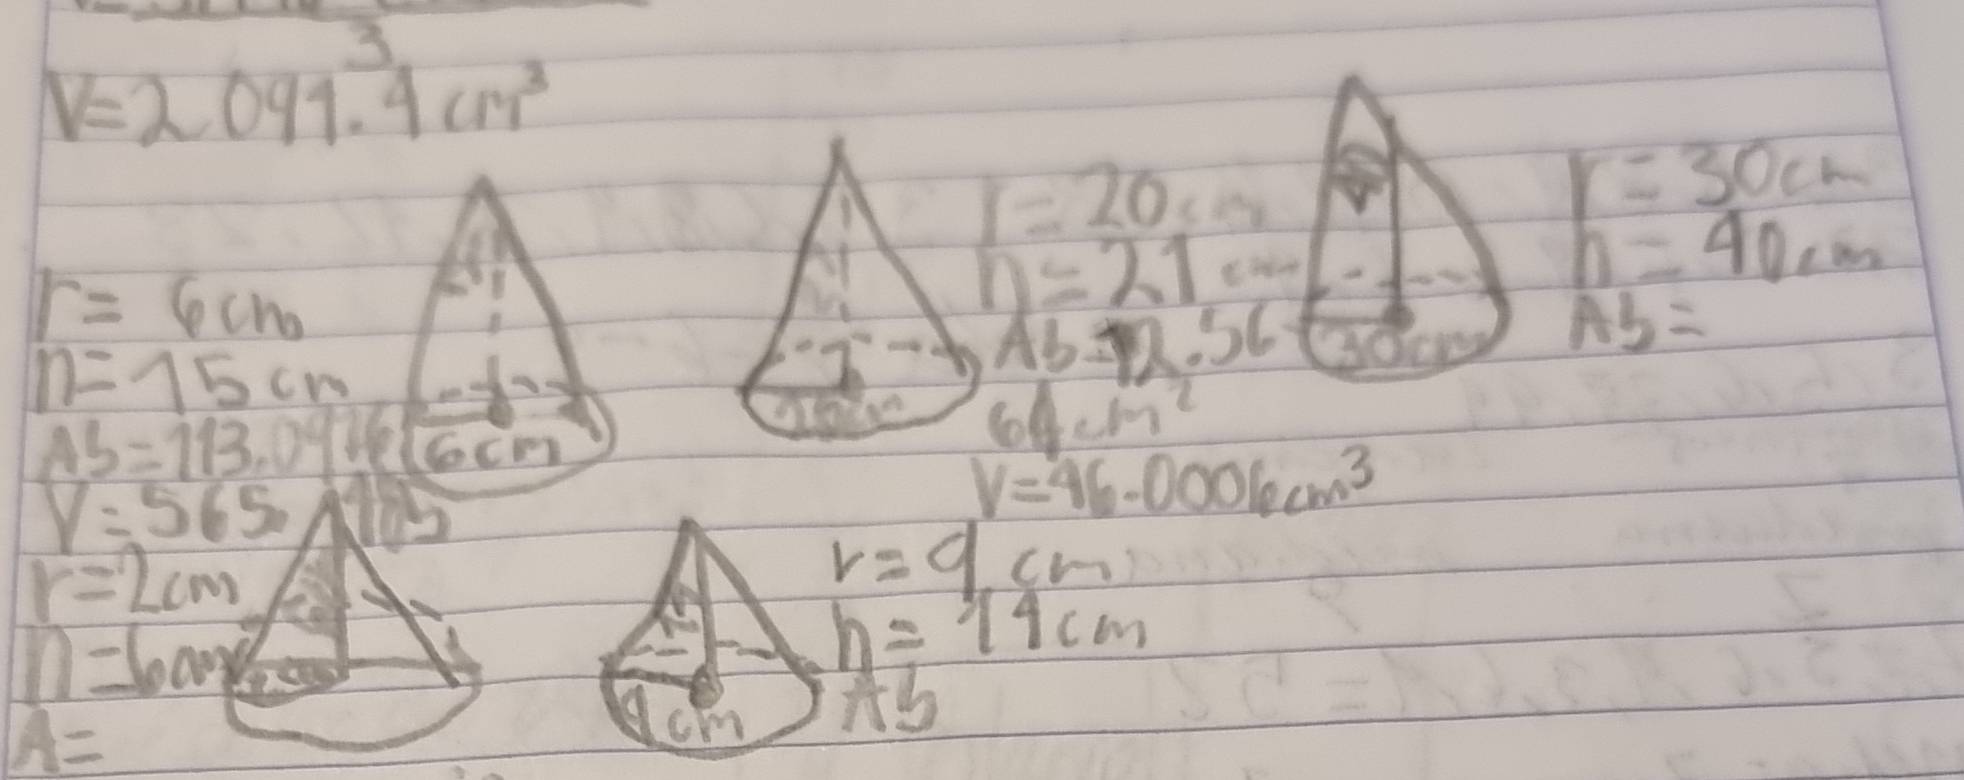 3
V=2 094.4 cm³
r= 6cm
h=15cm
Ab=113.097
6cm
V=565.
r=20cm
h=21cm
Ab=12.56
64cm²
V=46.0006cm³
30cm
r=30cm
h=40cm
Ab=
r=2cm
h=6cm
A=
9cm
r=9 cm
h=14cm
Ab